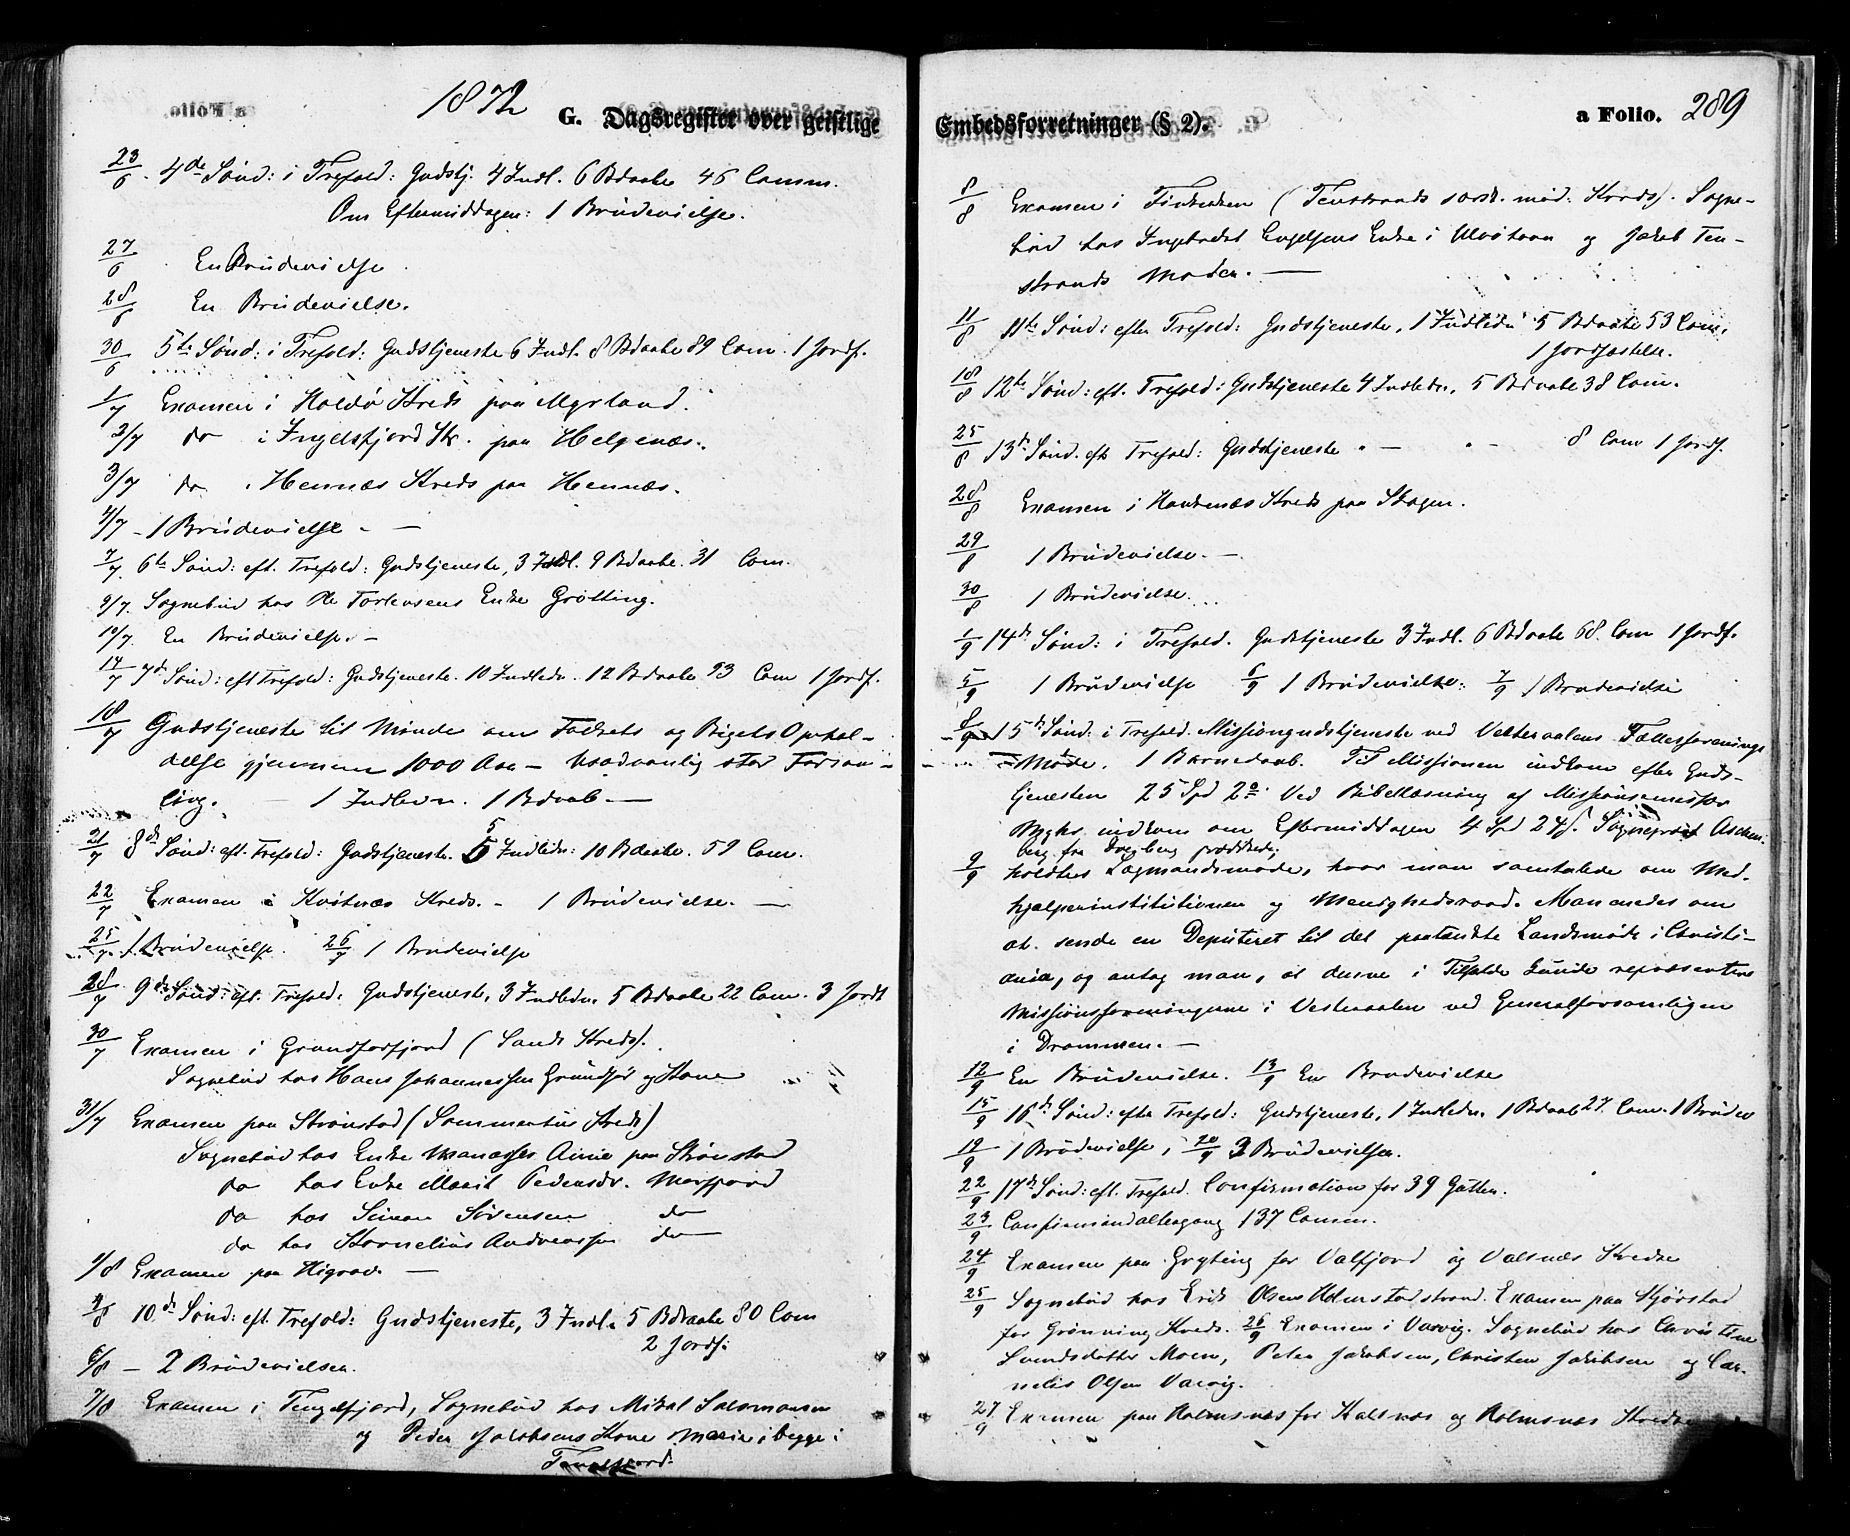 1872
G. Dagsregister over geistlige
23/6. 4de Sønd: i Trefold: Gudstj. 4 Indl. 6 Bdaabe 46 Comm.
Om Eftermiddagen: 1 Brudevielse.
27/6 En Brudevielse.
28/6 En Brudevielse.
30/6 5te Sønd: i Trefold: Gudstjeneste 6 Indl. 8 Bdaabe 89 Com. 1 Jordf.
1/7 Examen i Haldø Kreds paa Myrland.
2/7 do i Ingelsfjord Kr. paa Helgenæs.
3/7 do i Hennæs Kreds paa Hennæs.
4/7 - 1 Brudevielse - —
7/7. 6te Sønd: eft. Trefold: Gudstjeneste, 3 Indl. 9 Bdaabe. 31 Com.
9/7. Sognebud hos Ole Torkensens Enke Grøtting.
10/7. En Brudevielse. -
14/7 7de Sønd: eft Trefold: Gudstjeneste. 10 Indledn. 12 Bdaabe 93 Com 1 Jordf.
18/7 Gudstjeneste til Minde om Folkets og Rigets Ophol-
delse gjennem 1000 Aar - usædvanlig stor Forsam-
ling. — 1 Indledn. 1 Bdaab —
21/7 8de Sønd: eft. Trefold: Gudstjeneste. 5 Indledn: 10 Bdaabe. 59 Com.
22/7 Examen i Kvitnæs Kreds. - 1 Brudevielse. —
25/7. 1 Brudevielse. 26/7 1 Brudevielse
28/7 9de Sønd: eft. Trefold: Gudstjeneste, 3 Indledn. 5 Bdaabe 22 Com. 3 Jordf
30/7 Examen i Grundforfjord (Sands Kreds).
Sognebud hos Hans Johannessen Grundfør og Kone
31/7 Examen paa Strønstad (Sommerhus Kreds)
Sognebud hos Enke Manasses Anne paa Strønstad
do hos Enke Marit Pedersdr. Morfjord
do hos Simon Sørensen do
do hos Kornelius Andreassen do
1/8 Examen paa Higrav. —
4/8 10de Sønd: eft. Trefold: Gudstjeneste, 3 Indl. 5 Bdaabe 80 Com
2 Jordf:
6/8 - 2 Brudevielser.
7/8 Examen i Tengelfjord, Sognebud hos Mikal Salomonsen
og Peder Jakobsens Kone Maria i begge i
Tengelfjord.
Embedsforretninger (§ 2).
a Folio. 289
8/8 Examen i (Tenstrands særsk. mod: Kreds). Sogne-
bud hos Ingebrigt Engelsens Enke i Ulvøhavn og Jakob Ten-
strands Moder. —
11/8 11te Sønd: efter Trefold: Gudstjeneste, 1 Indledn: 5 Bdaabe 53 Com:
1 Jordfæstelse.
18/8 12te Sønd: eft. Trefold: Gudstjeneste 4 Indledn, 5 Bdaabe 38 Com.
25/8 13de Sønd. eft Trefold: Gudstjeneste " — " - 8 Com 1 Jordf.
28/8 Examen i Hauknæs Kreds paa Skagen.
29/8 1 Brudevielse. —
30/8 1 Brudevielse.
1/9 14de Sønd: i Trefold. Gudstjeneste 3 Indl. 6 Bdaabe 68. Com 1 Jordf.
5/9 1 Brudevielse 6/9 1 Brudevielse: 7/9 1 Brudevielse
8/9 15de Sønd: i Trefold. Missiongudstjeneste ved Vesteraalens Fællesforenings
Møde. 1 Barnedaab. Til Missionen indkom efter Guds-
tjenesten 25 Spd 2o. Ved Bibellæsning af Missionsemissær
indkom om Eftermiddagen 4 Spd 24 s. Sogneprest Aschen-
berg fra Dverberg prædikede;
9/9 holdtes Lægmandsmøde, hvor man samtalede om Med-
hjælperinstitutionen og Menighedsraad. Man enedes om
at sende en Deputeret til det paatænkte Landsmøde i Christi-
ania, og antog man, at denne i Tilfælde kunde repræsentere
Missionsforeningerne i Vesteraalen ved Generalforsamlingen
i Drammen. —
12/9 En Brudevielse. 13/9 En Brudevielse
15/9 16de Sønd: efter Trefold: Gudstjeneste, 1 Indledn. 1 Bdaab 27. Com. 1 Brudev
19/9 1 Brudevielse, 20/9 2 Brudevielser.
22/9 17de Sønd: eft. Trefold. Confirmation for 39 Gutter.
23/9 Confirmandaltergang 137 Comm.
24/9 Examen paa Gryting for Valfjord og Valsnæs Kredse
25/9 Sognebud hos Erik Olsen Holmstadstrand. Examen paa Kjørstad
for Grønning Kreds. 26/9 Examen i Varvig. Sognebud hos Christine
Svendsdatter Moen, Peter Jakobsen, Christen Jakobsen og Cor-
nelis Olsen Varvig.
27/9 Examen paa Holmsnæs for Kalsnæs og Holmsnæs Kredse